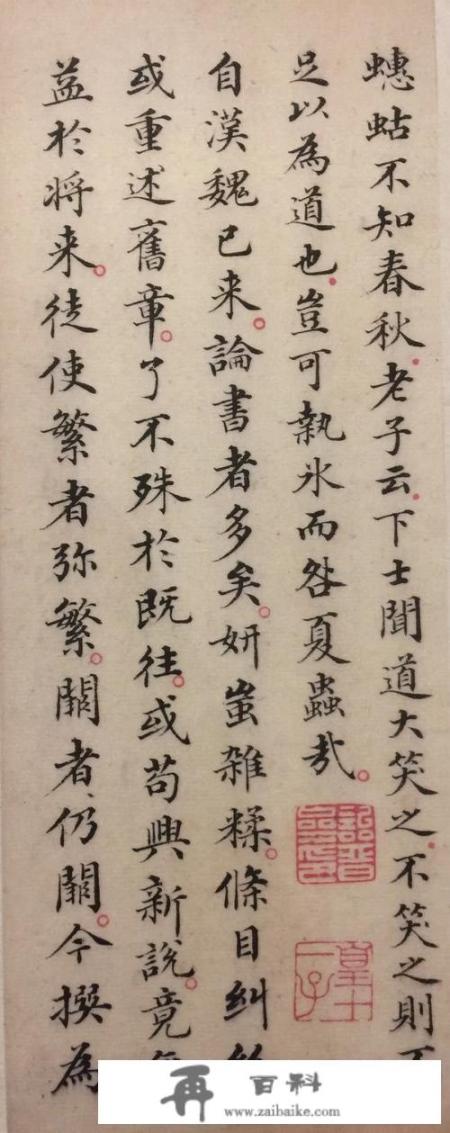 蟪蛄不知春秋。老子云。下士聞道大笑之。不笑之則
足以為道也。豈可執氷而咎夏蟲哉。
詒晉齋印
皇十一子
自漢魏已来。論書者多矣。妍蚩雜糅。條目糾
或重述舊章。了不殊於既往。或苟興新說。竟
益於将来。徒使繁者弥繁。闕者仍闕。今撰為
再百科
www.zaibaike.com